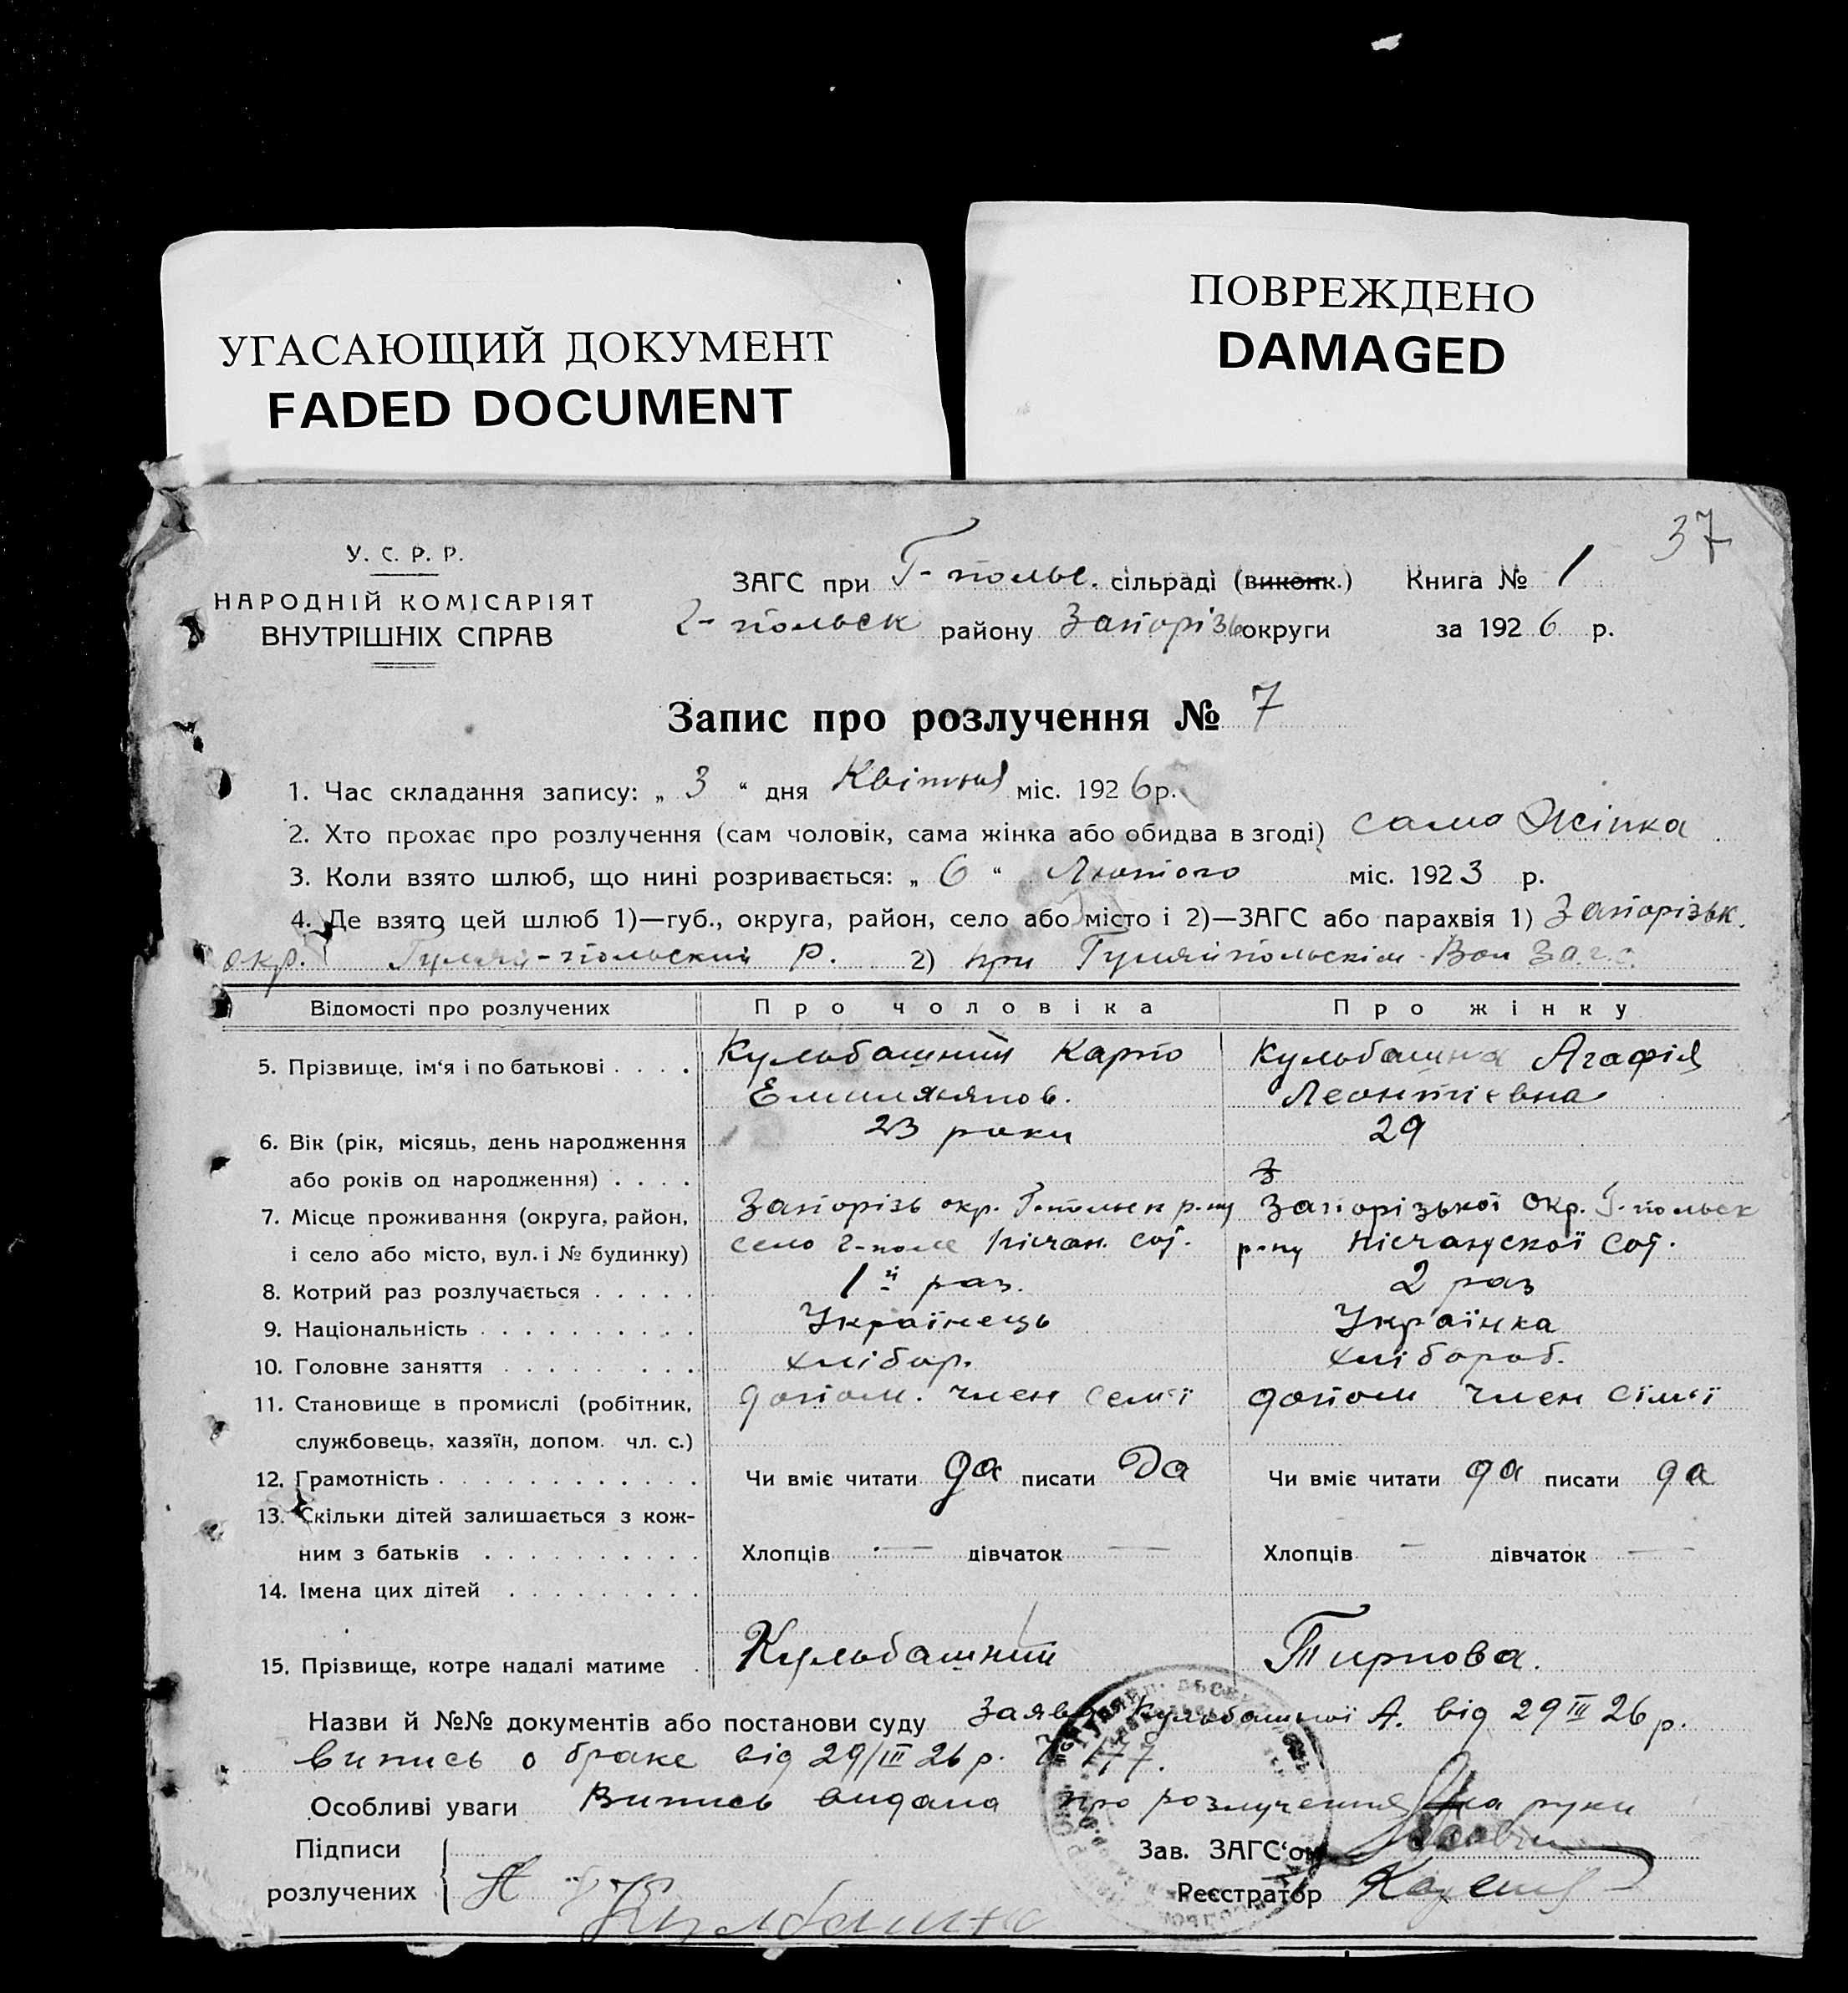 УГАСАЮЩИЙ ДОКУМЕНТ
FADED DOCUMENT
ПОВРЕЖДЕНО
DAMAGED
37
У. С. Р. Р.
НАРОДНІЙ КОМІСАРІЯТ
ВНУТРІШНІХ СПРАВ
ЗАГС при Г-польс. сільраді (виконк.) Книга № 1
Г-польск району Запорізь округи за 1926 р.
Запис про розлучення № 7
1. Час складання запису: „ 3 “ дня Квітня міс. 1926 р.
2. Хто прохає про розлучення (сам чоловік, сама жінка або обидва в згоді) само Жінка
3. Коли взято шлюб, що нині розривається: „ 6 “ Лютого міс. 1923 р.
4. Де взято цей шлюб 1)—губ., округа, район, село або місто і 2)—ЗАГС або парахвія 1) Запорізьк.
окр. Гуляй-польский р. 2) при Гуляйпольскім Вол Загс
Відомості про розлучених Про чоловіка Про жінку
5. Прізвище, ім‘я і по батькові . . . . Кульбашний Карпо Кульбашна Агафія
Емилянов. Леонтієвна
6. Вік (рік, місяць, день народження 23 роки 29
або років од народження) . . . . З
7. Місце проживання (округа, район, Запорізь окр. Г-польск р-ну Запорізької Окр. Г-польск
і село або місто, вул. і № будинку) село Г-поле Пісчан. сот. р-ну Пісчанускої сот.
8. Котрий раз розлучається . . . . . 1й раз. 2 раз
9. Національність . . . . . . . . . . Українець Українка
10. Головне заняття . . . . . . . . хлібор. хлібороб.
11. Становище в промислі (робітник, допом. член семʼї допом член сімʼї
службовець, хазяїн, допом. чл. с.)
12. Грамотність . . . . . . . . . . . . Чи вміє читати да писати да Чи вміє читати да писати да
13. Скільки дітей залишається з кож-
ним з батьків . . . . . . . . . . Хлопців — дівчаток — Хлопців — дівчаток —
14. Імена цих дітей . . . . . . . . .
15. Прізвище, котре надалі матиме . Кульбашний Тирнова.
Назви й №№ документів або постанови суду Заява Кульбашної А. від 29 III 26 р.
Випись о браке від 29/III 26 р. 177.
Особливі уваги Випись видана про розлучення на руки
Підписи Зав. ЗАГС‘ом
розлучених Кульбашна Реєстратор